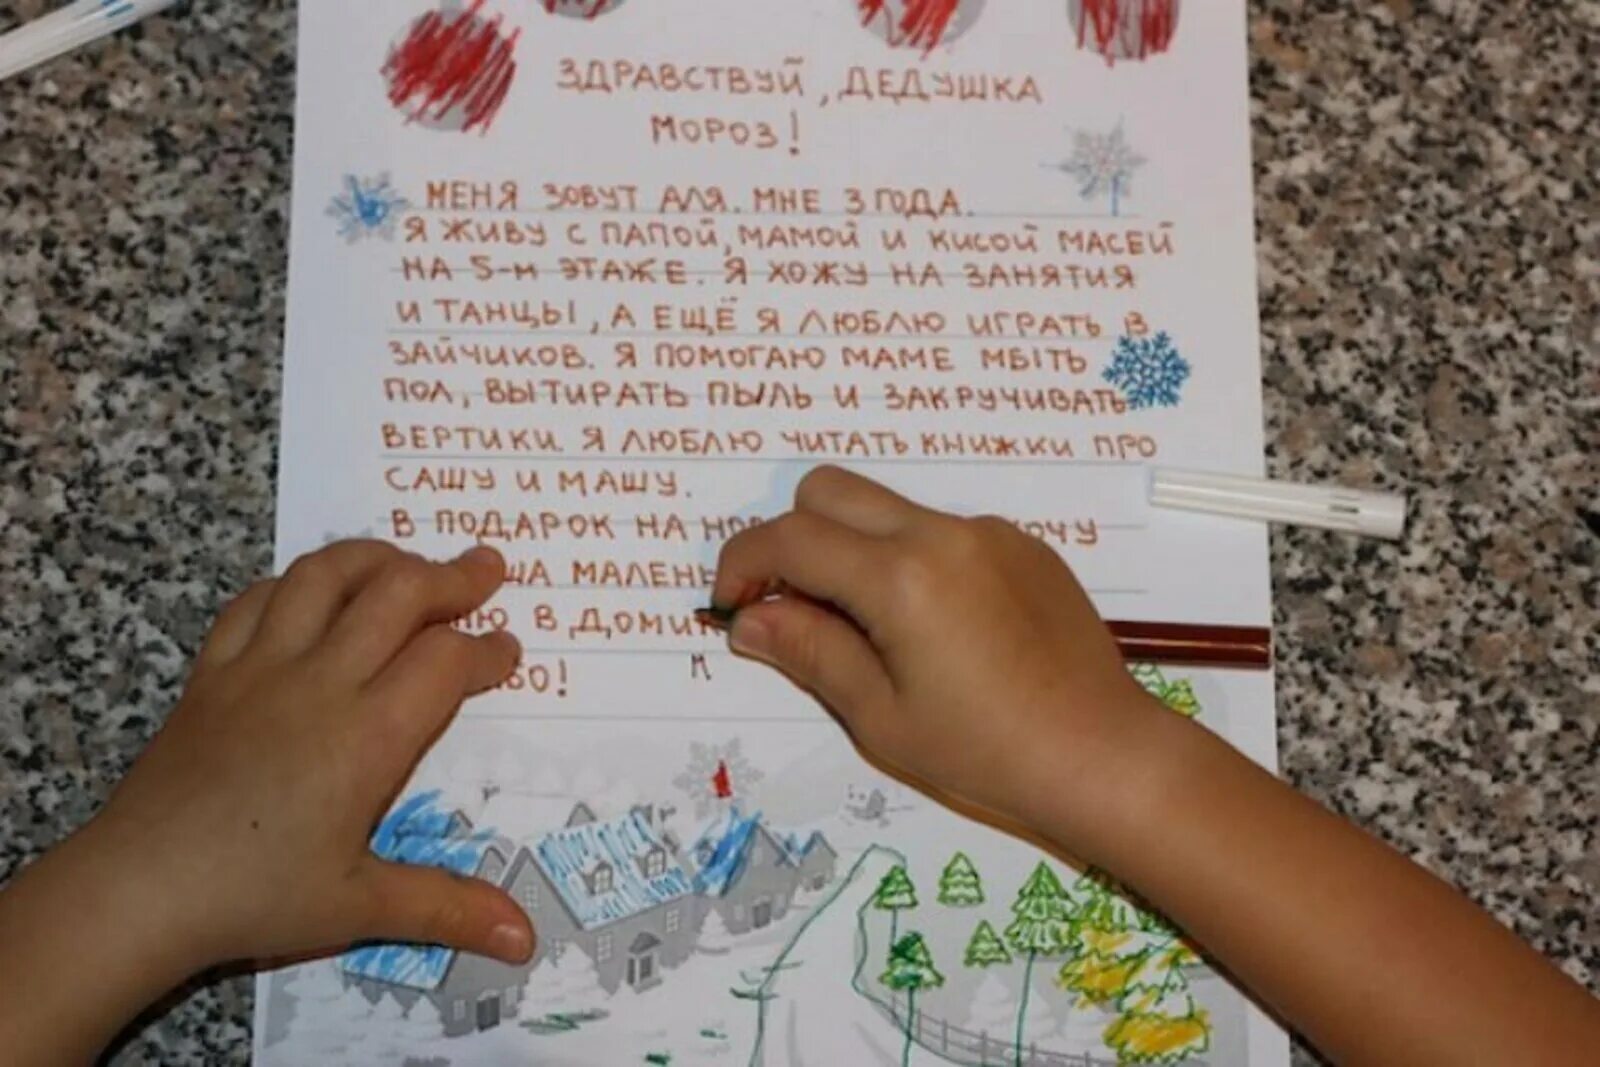 ЗДРАВСТВУЙ, ДЕДУШКА
МОРОЗ!
МЕНЯ ЗОВУТ АЛЯ. МНЕ 3 ГОДА.
Я ЖИВУ С ПАПОЙ, МАМОЙ И КИСОЙ МАСЕЙ
НА 5-М ЭТАЖЕ. Я ХОЖУ НА ЗАНЯТИЯ
И ТАНЦЫ, А ЕЩЁ Я ЛЮБЛЮ ИГРАТЬ В
ЗАЙЧИКОВ. Я ПОМОГАЮ МАМЕ МЫТЬ
ПОЛ, ВЫТИРАТЬ ПЫЛЬ И ЗАКРУЧИВАТЬ
ВЕРТИКИ. Я ЛЮБЛЮ ЧИТАТЬ КНИЖКИ ПРО
САШУ И МАШУ.
В ПОДАРОК НА
МАЛЕНЬ
В ДОМИК
К